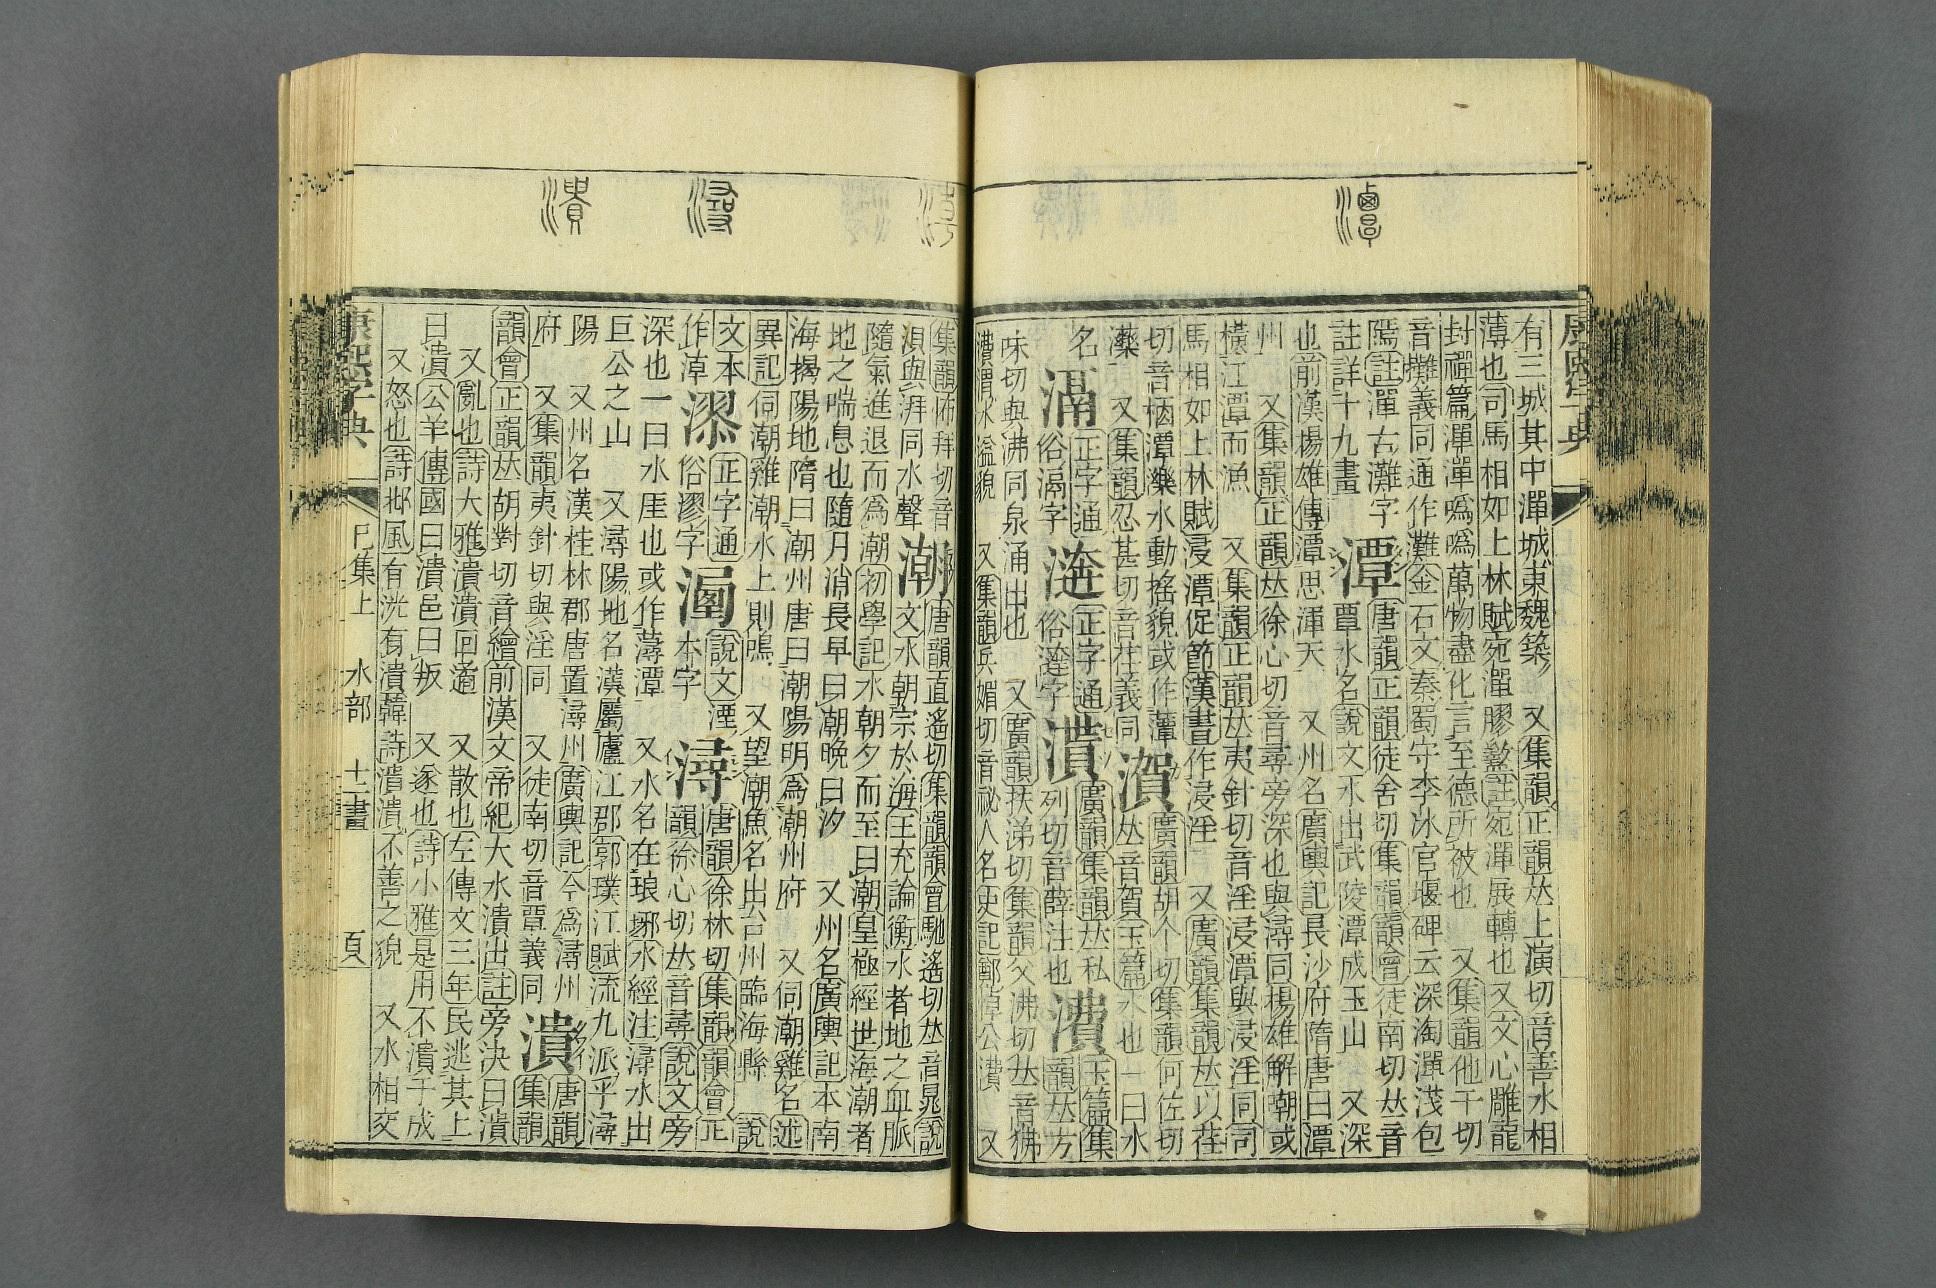 康熙字典
潭
有三城其中潬城東魏築 又集韻正韻𠀤上演切音善水相
薄也司馬相如上林賦宛潬膠盭註宛潬展轉也又文心雕龍
封禪篇潬潬噅噅萬物盡化言至德所被也 又集韻他干切
音攤義同通作灘金石文秦蜀守李冰官堰碑云深淘潬淺包
隝註潬古灘字
註詳十九畫
潭
唐韻正韻徒含切集韻韻會徒南切𠀤音
覃水名說文水出武陵潭成玉山 又深
也前漢揚雄傳潭思渾天 又州名廣輿記長沙府隋唐曰潭
州 又集韻正韻𠀤徐心切音尋旁深也與潯同楊雄解嘲或
橫江潭而漁 又集韻正韻𠀤夷針切音淫浸潭與浸淫同司
馬相如上林賦浸潭促節漢書作浸淫 又廣韻集韻𠀤以荏
切音 潭濼水動搖貌或作藫
又集韻忍甚切音荏義同
廣韻胡个切集韻何佐切
𠀤音賀玉篇水也一曰水
名
正字通
俗滆字
正字通
俗澾字
廣韻集韻𠀤私
列切音薛注也
玉篇集
韻𠀤方
味切與沸同泉涌出也 又廣韻扶涕切集韻父沸切𠀤音狒
渭水溢貌 又集韻兵媚切音祕人名史記鄭悼公 又
集韻怖拜切音
湏與湃同水聲
潮
唐韻直遙切集韻韻會馳遙切𠀤音鼂說
文水朝宗於海王充論衡水者地之血脈
隨氣進退而爲潮初學記水朝夕而至曰潮皇極經世海潮者
地之喘息也隨月消長早曰潮晚曰汐 又州名廣輿記本南
海揭陽地隋曰潮州唐曰潮陽明爲潮州府 又伺潮雞名述
異記伺潮雞潮水上則鳴 又望潮魚名出台州臨海縣 說
文本
作淖
漻
正字通
俗漻字
說文湮
本字
潯
唐韻徐林切集韻韻會正
韻徐心切𠀤音尋說文旁
深也一曰水厓也或作潭 又水名在琅琊水經注潯水出
巨公之山 又潯陽地名漢屬廬江郡郭璞江賦流九派乎潯
陽 又州名漢桂林郡唐置潯州廣輿記今爲潯州
府 又集韻夷針切與淫同 又徒南切音覃義同
潰
唐韻
集韻
韻會正韻𠀤胡對切音繪前漢文帝紀大水潰出註旁決曰潰
又亂也詩大雅潰潰回遹 又散也左傳文三年民逃其上
曰潰公羊傳國曰潰邑曰叛 又遂也詩小雅是用不潰于成
又怒也詩邶風有洸有潰韓詩潰潰不善之貌 又水相交
潯
潰
康熙字典
巳集上 水部 十二畫 頁